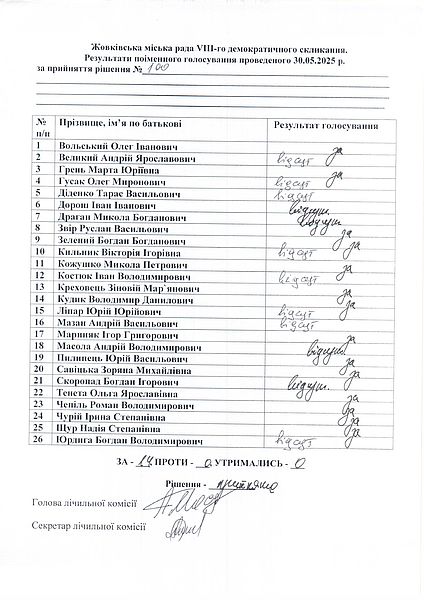 Жовківська міська рада VІІІ-го демократичного скликання.
Результати поіменного голосування проведеного 30.05.2025 р.
за прийняття рішення № 100
№ п/п Прізвище, ім’я по батькові Результат голосування
1 Вольський Олег Іванович за
2 Великий Андрій Ярославович відсут
3 Грень Марта Юріївна за
4 Гусак Олег Миронович відсут
5 Діденко Тарас Васильович відсут
6 Дорош Іван Іванович відсут.
7 Драган Микола Богданович відсут.
8 Звір Руслан Васильович за
9 Зелений Богдан Богданович за
10 Кильник Вікторія Ігорівна відсут
11 Кожушко Микола Петрович за
12 Костюк Іван Володимирович відсут
13 Креховець Зіновій Мар’янович за
14 Кудик Володимир Данилович за
15 Ліпар Юрій Юрійович відсут
16 Мазан Андрій Васильович відсут
17 Мариняк Ігор Григорович за
18 Масола Андрій Володимирович відсут.
19 Пилипець Юрій Васильович за
20 Савіцька Зоряна Михайлівна за
21 Скоропад Богдан Ігорович відсут.
22 Тенета Ольга Ярославівна за
23 Чепіль Роман Володимирович за
24 Чурій Ірина Степанівна за
25 Щур Надія Степанівна за
26 Юрдига Богдан Володимирович відсут
ЗА - 14 ПРОТИ - 0 УТРИМАЛИСЬ - 0
Рішення - прийняте
Голова лічильної комісії
Секретар лічильної комісії